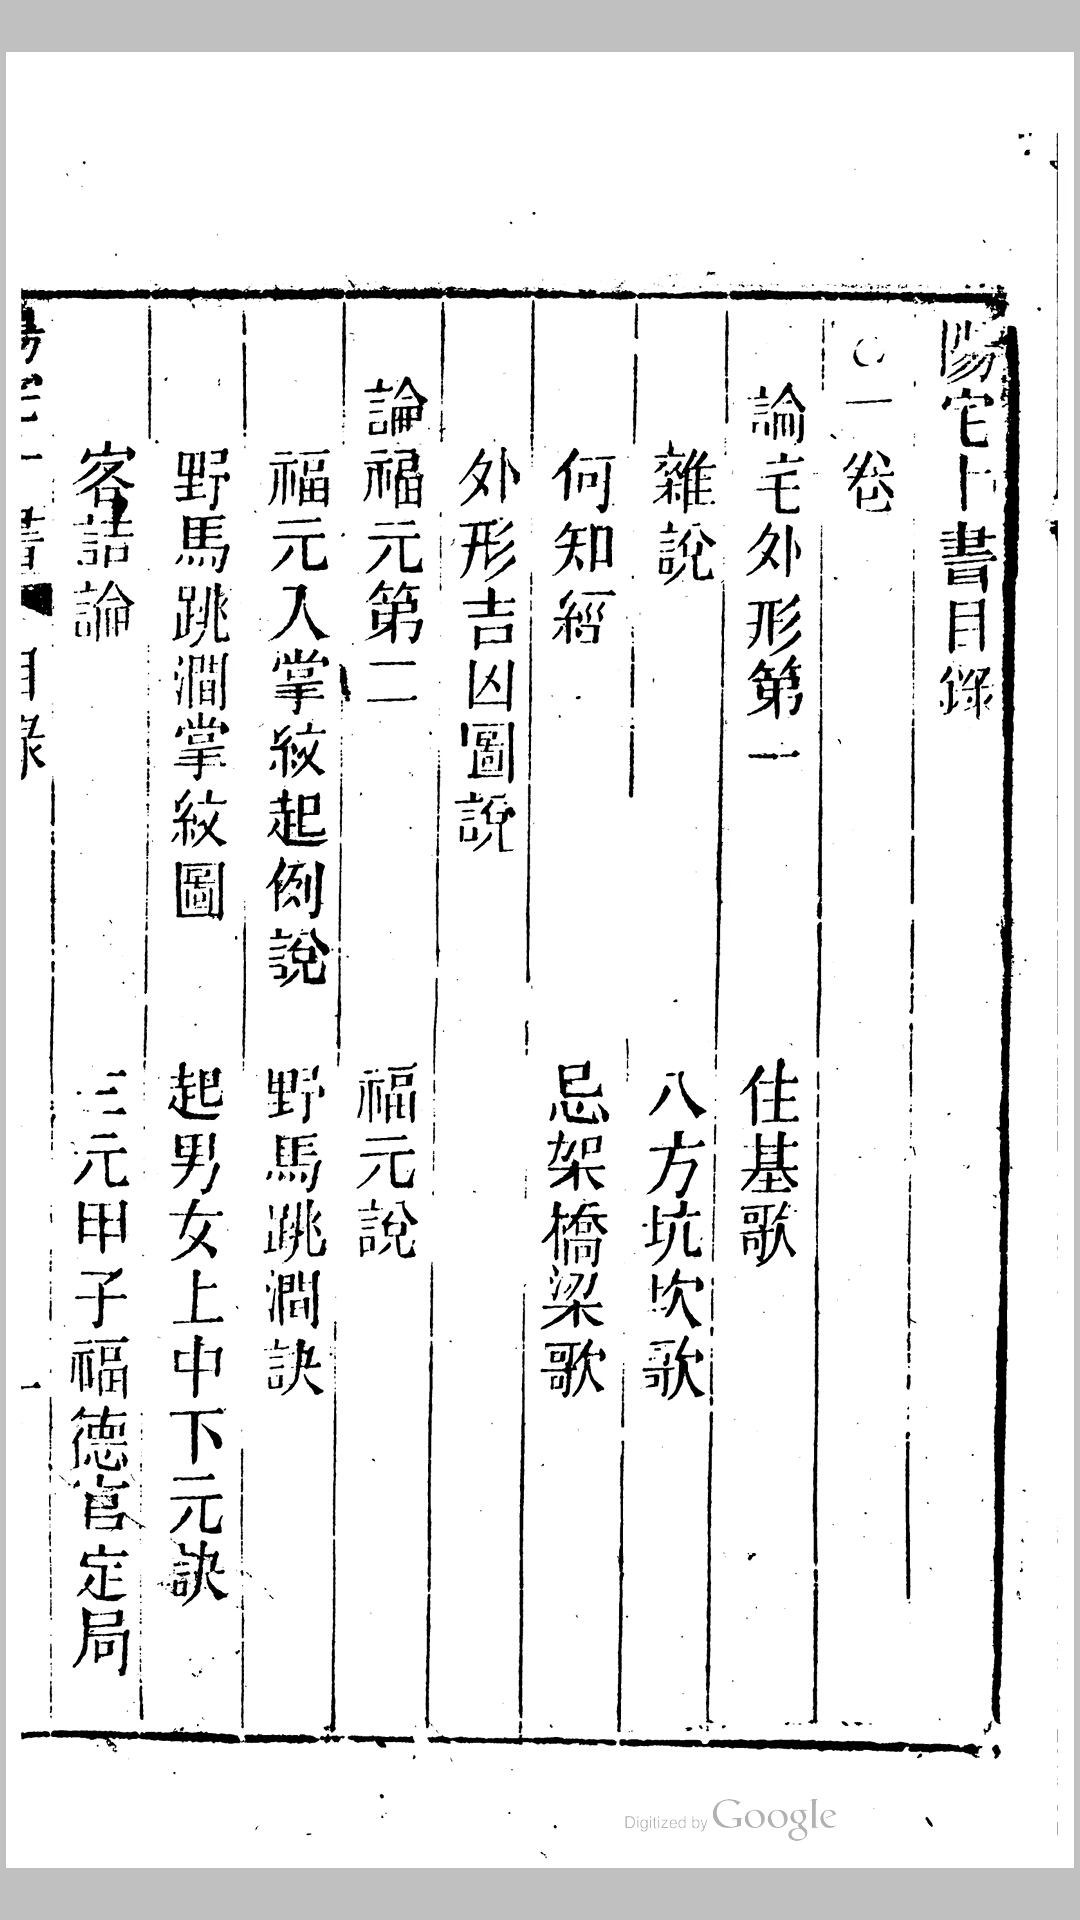 陽宅十書目錄
○一卷
論宅外形第一　住基歌
雜說　八方坑坎歌
何知經　忌架橋梁歌
外形吉凶圖說
論福元第二　福元說
福元入掌紋起例說　野馬跳澗訣
野馬跳澗掌紋圖　起男女上中下元訣
客詰論　三元甲子福德宮定局
Digitized by Google